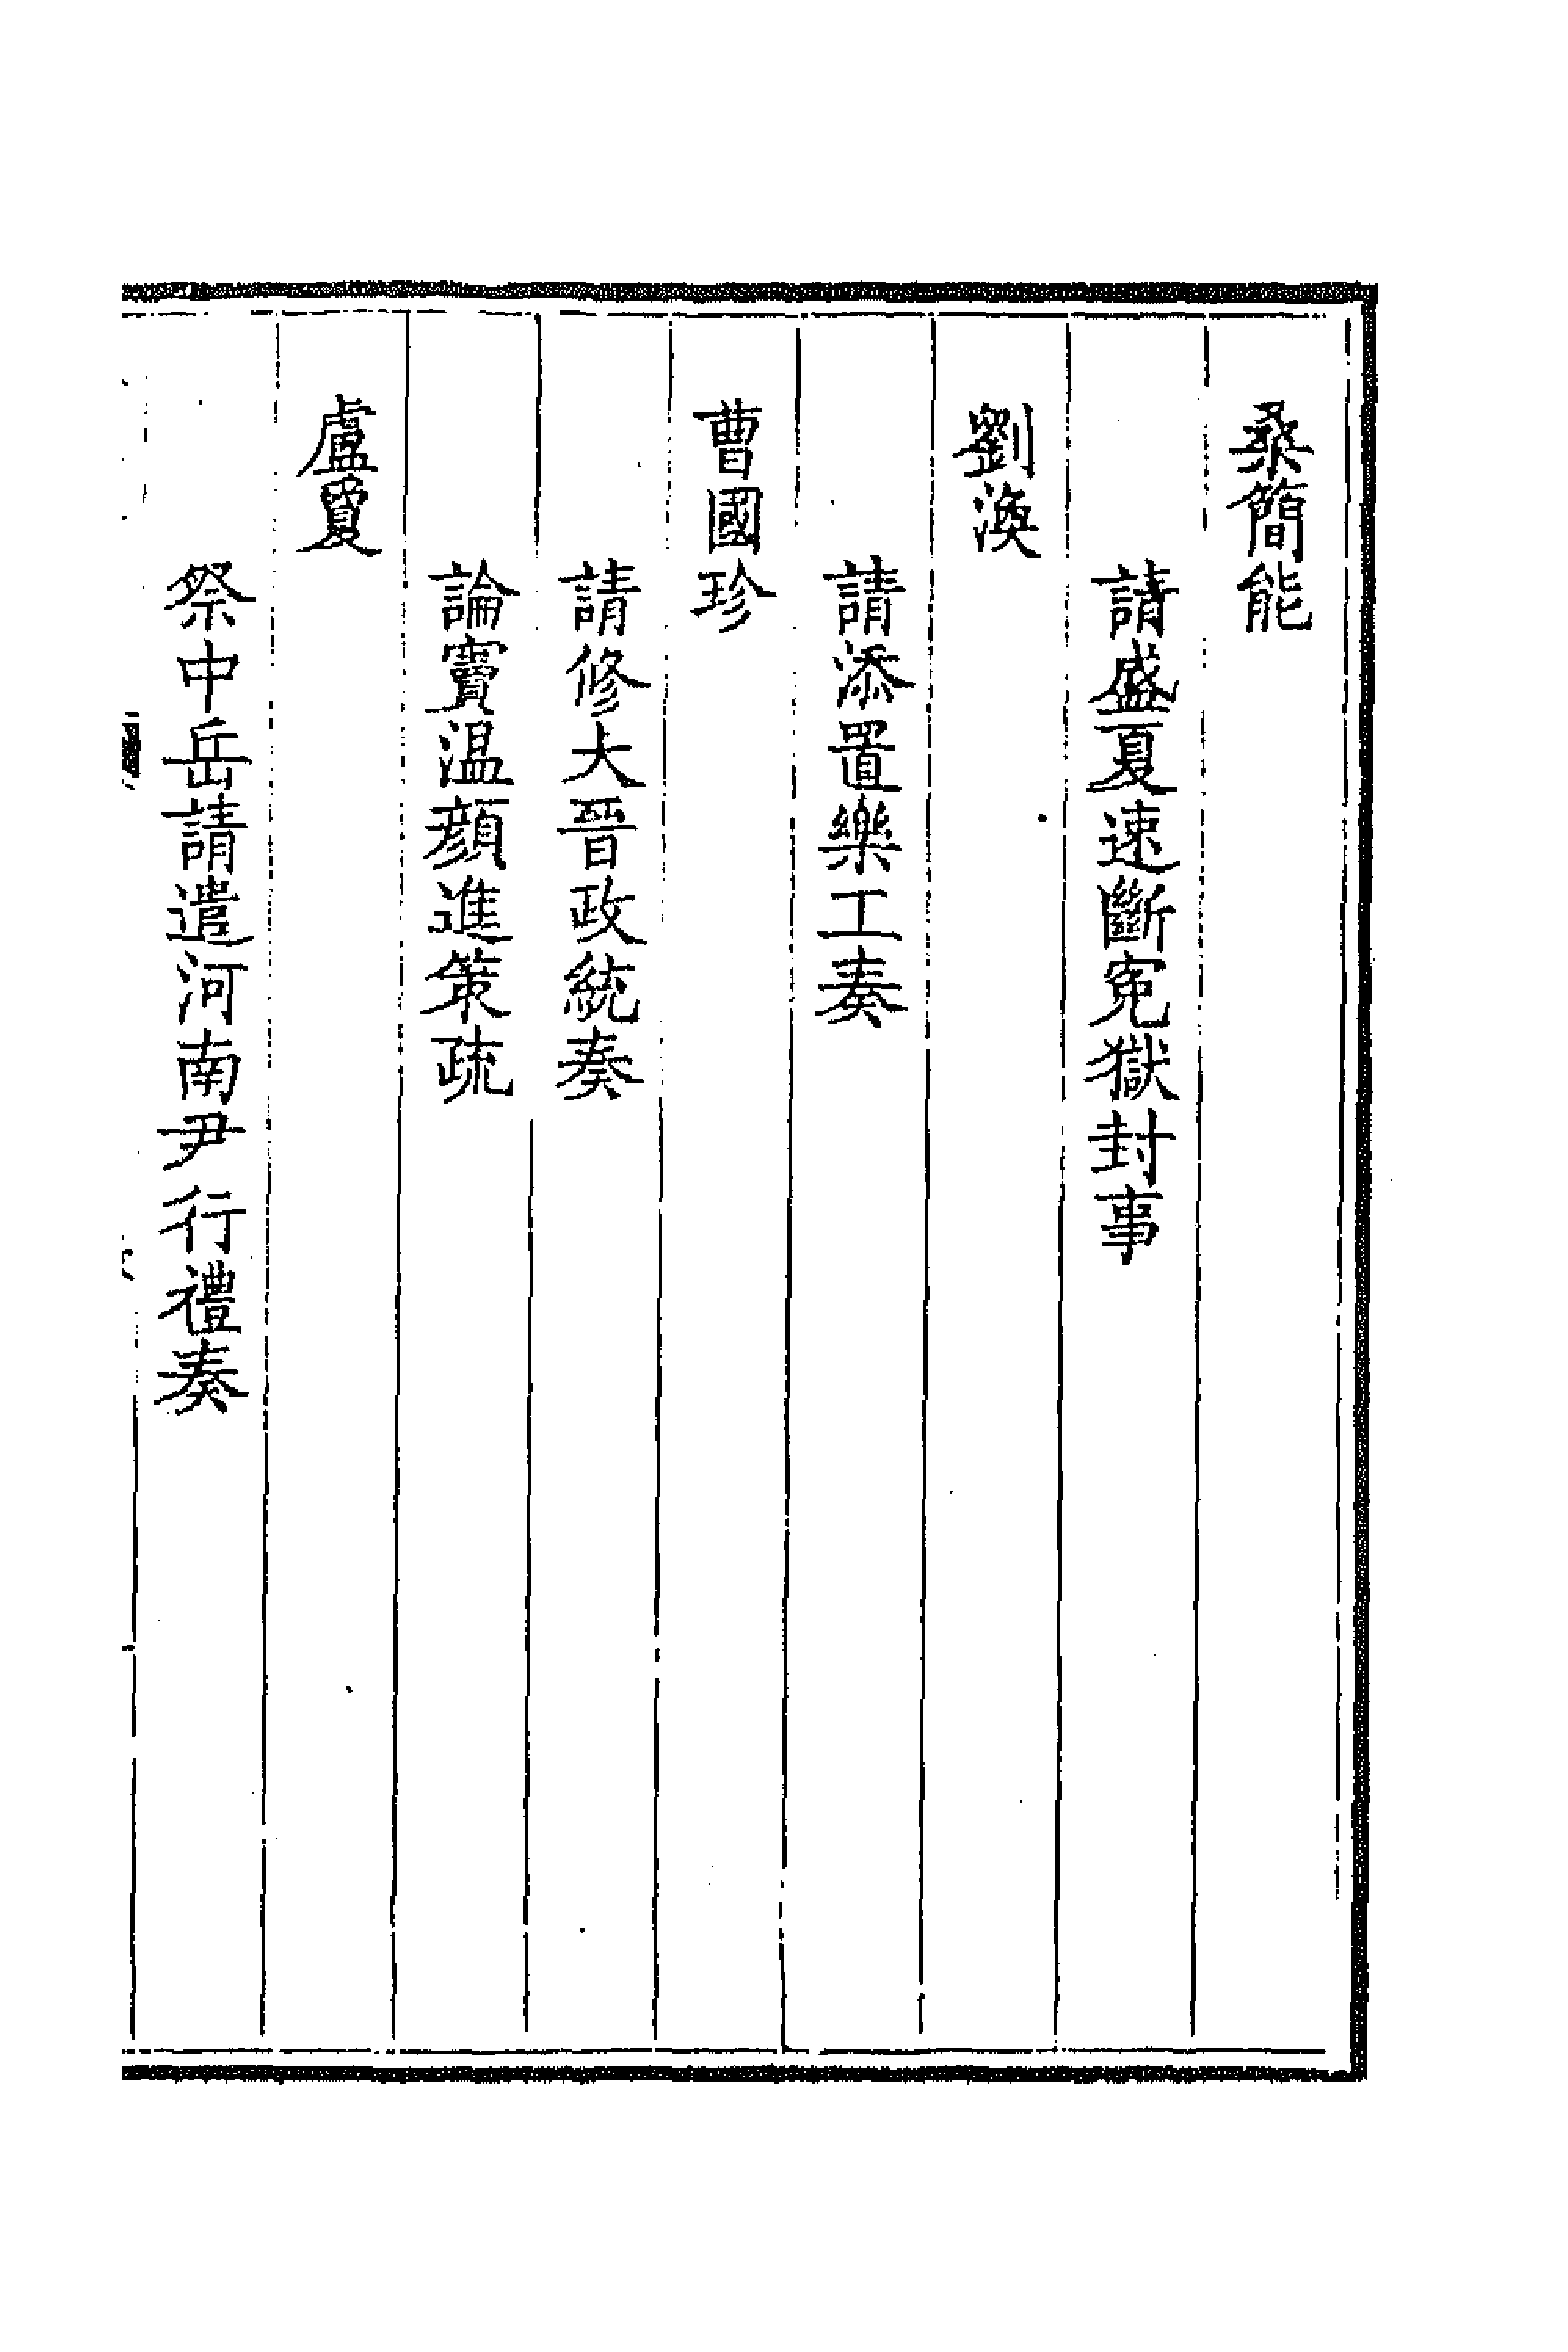 桑簡能
請盛夏速斷寃獄封事
劉渙
請添置樂工奏
曹國珍
請修大晉政統奏
論竇温顔進策疏
盧
祭中岳請遣河南尹行禮奏